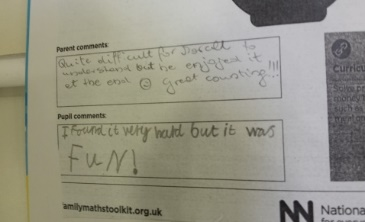 Parent comments:
Quite difficult for to
understand but he enjoyed it
at the end ☺ great counting!!!
Pupil comments:
I found it very hard but it was
FUN!
amilymathstoolkit.org.uk
Nationa
Curricu